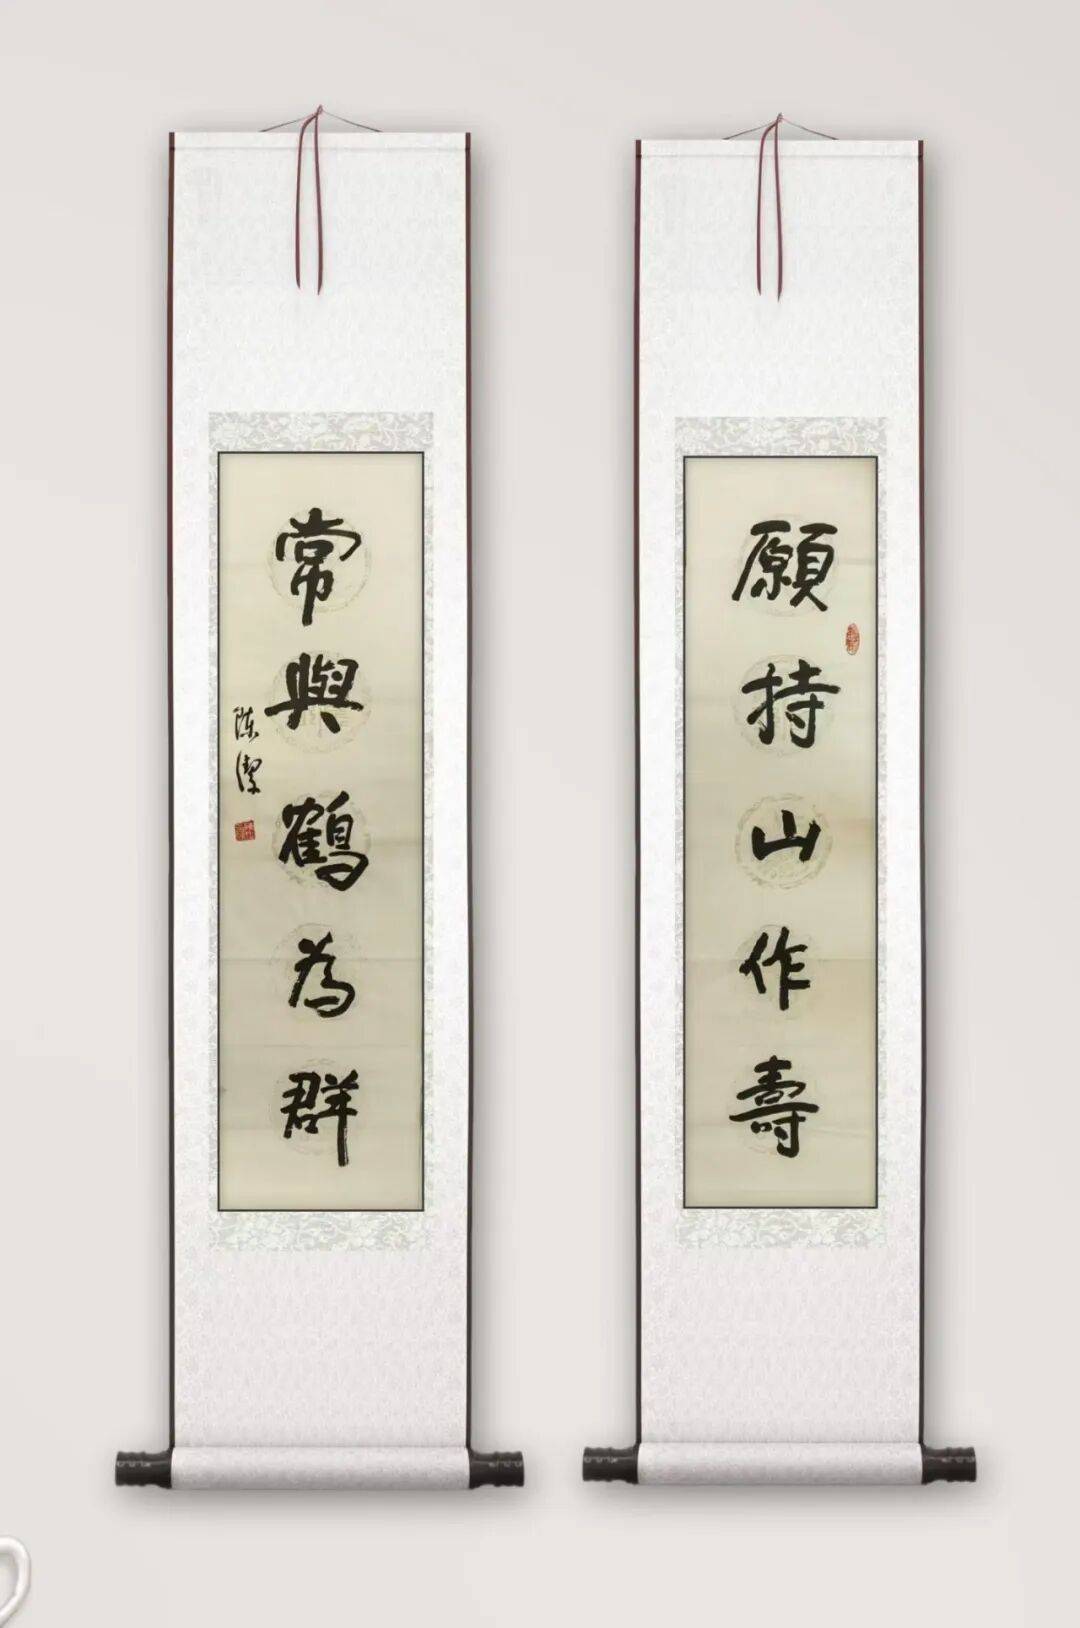 願持山作壽
常與鶴為群
陈潔